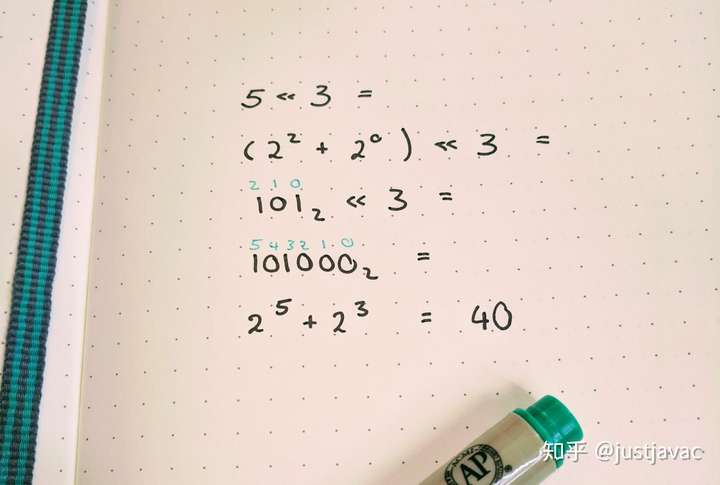 5 << 3 =
(2² + 2⁰) << 3 =
2 1 0
101₂ << 3 =
5 4 3 2 1 0
101000₂ =
2⁵ + 2³ = 40
AP
知乎 @justjavac